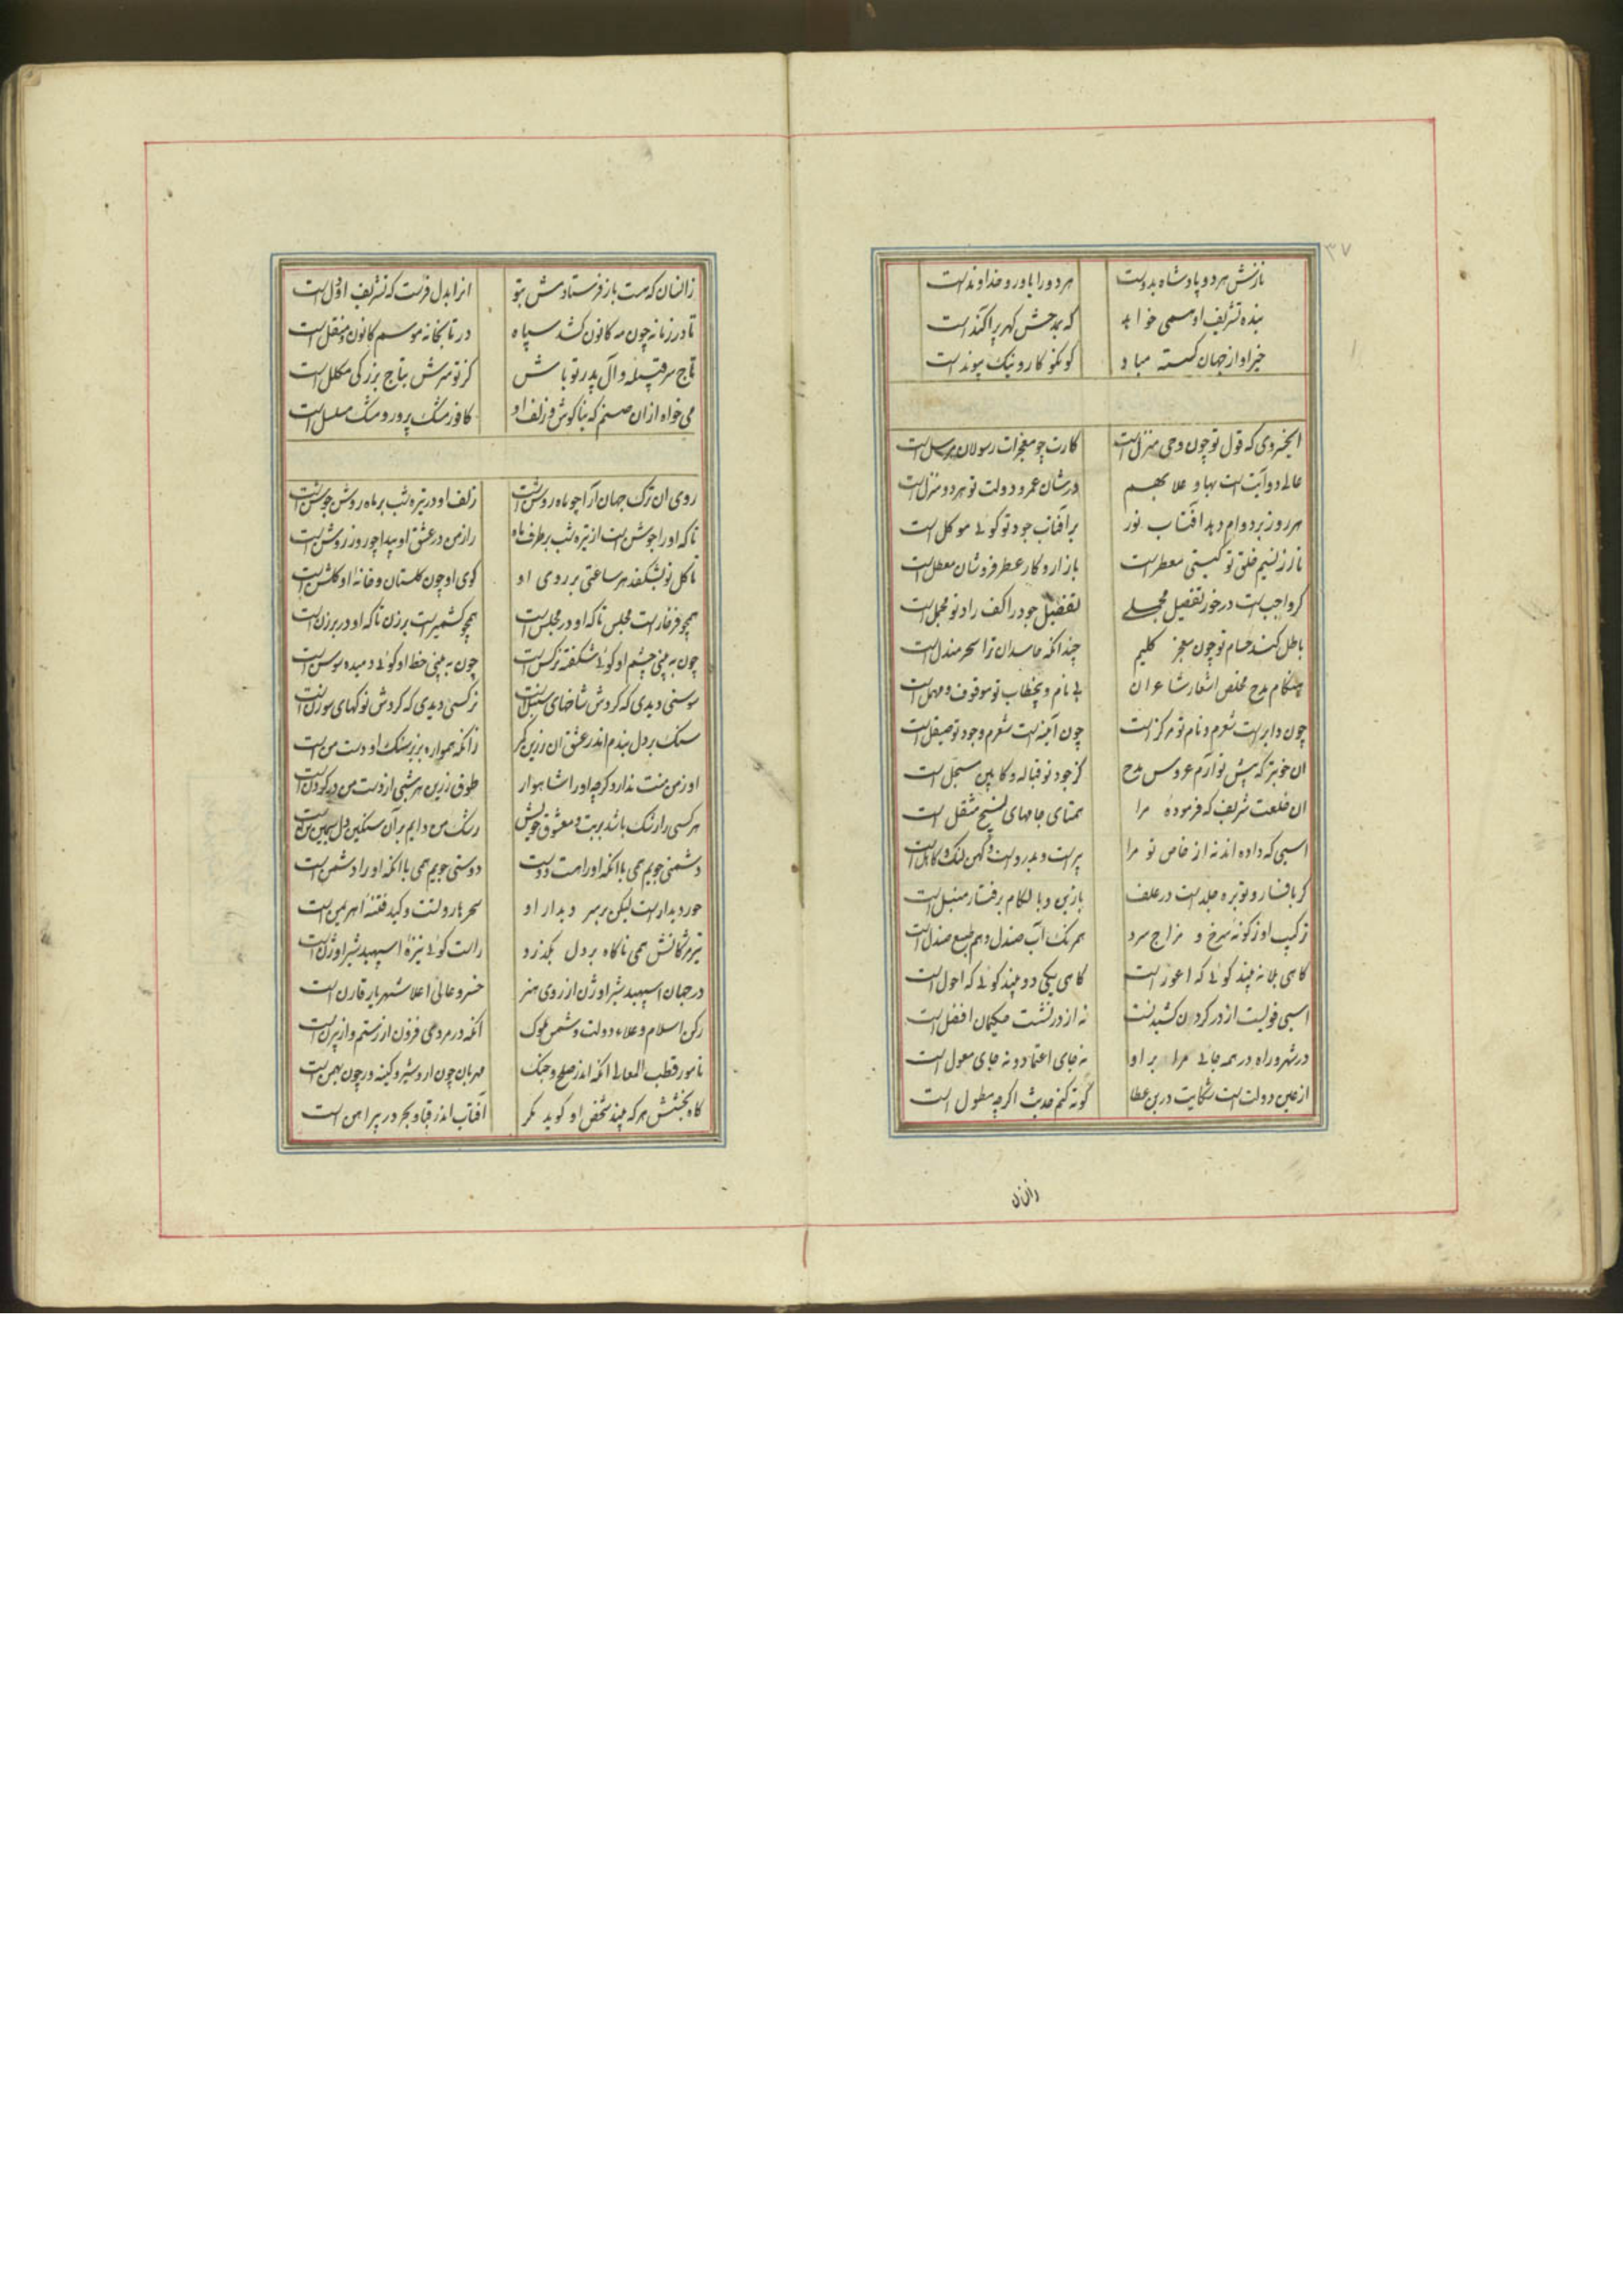 ۳۷
نازش هر دو پادشاه بدوست هر دو را یاور و خداوند است
بنده تشریف او همی خواهد که بمدحش گهر پراگند است
خیر او از جهان گسسته مباد کو نکو کار و نیک پیوند است
ای خسروی که قول تو چون وحی منزل است کارت چو معجزات رسولان مرسل است
عالی دو آیت است بها و علا بهم در شان عمر و دولت تو هر دو منزل است
هر روز بر دوام دهد آفتاب نور بر آفتاب جود تو گوئی موکل است
تا از نسیم خلق تو گیتی معطر است بازار و کار عطر فروشان معطل است
گر واجب است در خور تفصیل مجملی تفضیل جود را کف راد تو مجمل است
باطل کند حسام تو چون معجز کلیم چندانکه حاسدان ترا سحر مندل است
هنگام مدح مخلص اشعار شاعران بی نام و بی خطاب تو موقوف و مهمل است
چون دایره است شعرم و نام تو مرکز است چون آینه است شعرم و جود تو صیقل است
آن خوبتر که پیش تو آرم عروس مدح کز جود تو قباله و کابین مسجل است
آن خلعت شریف که فرموده مرا همتای جامهای نسیج مثقل است
اسبی که داده اند نه از خاص تو مرا پیر است و بدرو است و کهن لنگ و کاهل است
گر بافسار و توبره جلد است در علف با زین و با لگام برفتار منبل است
ترکیب او ز گونه سرخ و مزاج سرد همرنگ آب صندل و هم طبع صندل است
گاهی بلا نه بیند گوئی که اعور است گاهی یکی دو بیند گوئی که احول است
اسبی قویست از در گردون کشیدنست نه از در نشست حکیمان افضل است
در شهر و راه در همه جائی مرا بر او نه جای اعتماد و نه جای معول است
از عین دولت است شکایت درین عطا کوته کنم حدیث اگرچه مطول است
زانسان
زانسان که هست باز فرستادمش بتو آنرا بدل فرست که تشریف اول است
تا در زمانه چون مه کانون کشد سپاه در تابخانه موسم کانون و منقل است
تاج سر قبیله و آل پدر تو باش کز تو سرش بتاج بزرگی مکلل است
می خواه از آن صنم که بناگوش و زلف او کافور مشک پرور و مشک مسلسل است
روی آن ترک جهان آرا چو ماه روشن است زلف او در تیره شب بر ماه روشن جوشن است
تا که او را جوشن است از تیره شب بر طرف ماه راز من در عشق او پیدا چو روز روشن است
تا گل نو بشکفد هر ساعتی بر روی او کوی او چون گلستان و خانه او گلشن است
همچو فرخار است مجلس تا که او در مجلس است همچو کشمیر است برزن تا که او در برزن است
چون به بینی چشم او گوئی شکفته نرگس است چون به بینی خط او گوئی دمیده سوسن است
سوسنی دیدی که گردش شاخهای سنبل است نرگسی دیدی که گردش نوکهای سوزن است
سنگ بر دل بندم اندر عشق آن زرین کمر زانکه همواره بزیر سنگ او دست من است
او ز من منت ندارد گرچه او را شاهوار طوق زرین هر شبی از دست من در گردن است
هر کسی را رشک باشد بر بت و معشوق خویش رشک من دایم بر آن سنگین دل سیمین تن است
دشمنی جویم همی با آنکه او را هست دوست دوستی جویم همی با آنکه او را دشمن است
حور دیدار است لیکن بر سر دیدار او سحر هاروتست و کید فتنه اهریمن است
تیر مژگانش همی ناگاه بر دل بگذرد راست گوئی نیزه اسپهبد شیر اوژن است
در جهان اسپهبد شیر اوژن از روی هنر خسرو عالی اعلا شهریار قارن است
رکن اسلام و علاء دولت و شمس ملوک آنکه در مردمی فزون از رستم و از بیژن است
نامور قطب المعالی آنکه اندر صلح و جنگ مهربان چون اردشیر و کینه ور چون بهمن است
گاه بخشش هر که بیند شخص او گوید مگر آفتاب اندر قبا و بحر در پیراهن است